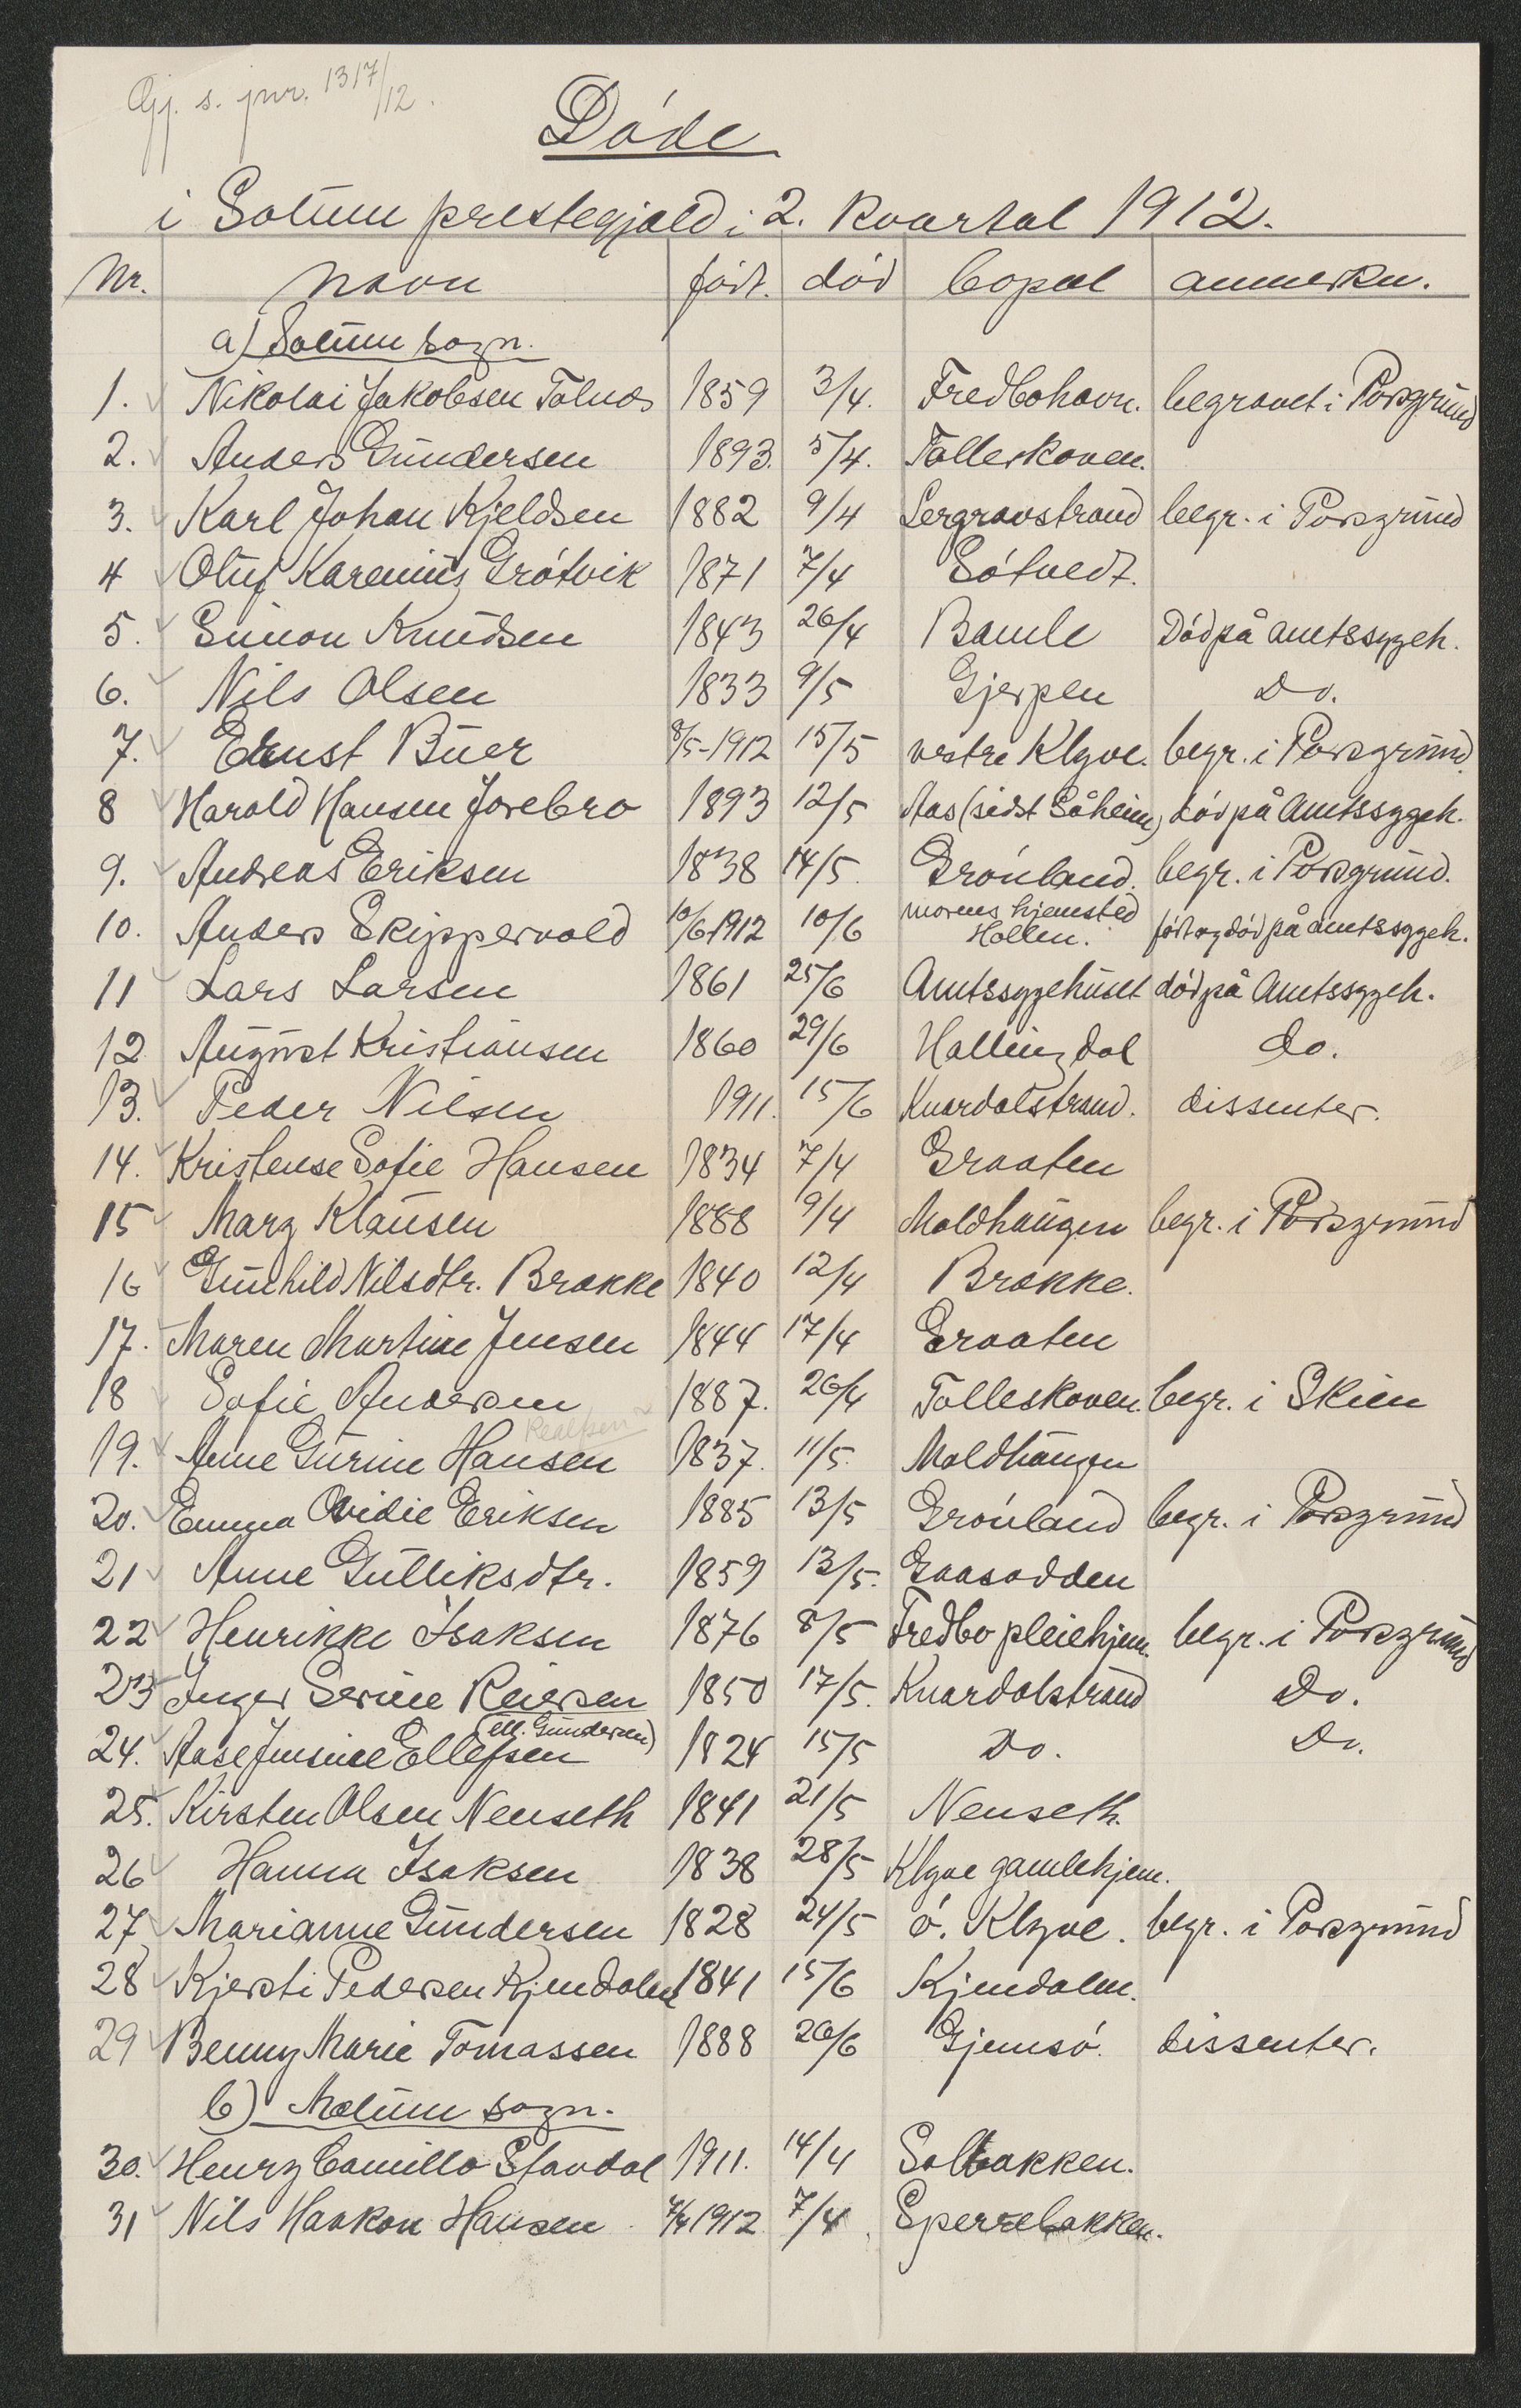 Gj. s. jnr. 1317/12.
Døde
i Solum prestegjeld i 2. kvartal 1912.
Nr. navn født. död bopæl anmerkn.
a) Solum sogn.
1. Nikolai Jakobsen Tolnæs 1859 3/4. Fredbohavn. begravet i Porsgrund
2. Anders Gundersen 1893. 5/4. Tolleskoven.
3. Karl Johan Kjeldsen 1882 9/4 Lergravstrand begr. i Porsgrund
4 Oluf Karenius Grótvik 1871 7/4 Sótvedt.
5. Simon Knudsen 1843 26/4 Bamle Död på amtssygeh.
6. Nils Olsen 1833 9/5 Gjerpen Do.
7. Ernst Buer 8/5-1912 15/5 vestre Klyve. begr. i Porsgrund.
8 Harald Hansen Jorebro 1893 12/5 Aas (sidst Såheim) död på Amtssygeh.
9. Andreas Eriksen 1838 14/5. Grónland. begr. i Porsgrund.
10. Anders Skippervold 10/6 1912 10/6 morens hjemsted Hollen. födt og död på amtssygeh.
11 Lars Larsen 1861 25/6 Amtssygehuset död på Amtssygeh.
12 August Kristiansen 1860 29/6 Hallingdal do.
13. Peder Nilsen 1911. 15/6 Knardalstrand. dissenter.
14. Kristense Sofie Hansen 1834 7/4 Graaten
15 Mary Klausen 1888 9/4 Moldhaugen begr. i Porsgrund
16 Gunhild Nilsdtr. Brække 1840 12/4 Brække.
17. Maren Martine Jensen 1844 17/4 Graaten
18 Sofie Andersen 1887. 26/4 Tolleskoven. begr. i Skien
19. Anne Gurine Hansen 1837. 11/5. Moldhaugen
20. Emma Ovidie Eriksen 1885 13/5 Grónland begr. i Porsgrund
21 Anne Gulliksdtr. 1859 13/5. Gaasodden
22 Henrikke Isaksen 1876 8/5 Fredbo pleiehjem. begr. i Porsgrund
23 Inger Serine Reiersen 1850 17/5. Knardalstrand Do.
(ell. Gundersen)
24. Aase Jensine Ellefsen 1824 15/5 Do. Do.
25. Kirsten Olsen Nenseth 1841 21/5 Nenseth.
26 Hanna Isaksen 1838 28/5 Klyve gamlehjem.
27 Marianne Gundersen 1828 24/5 ö. Klyve. begr. i Porsgrund
28 Kjersti Pedersen Kjendalen 1841 15/6 Kjendalen.
29 Benny Marie Tomassen 1888 20/6 Gjemsó. dissenter.
b) Melum sogn.
30. Henry Camillo Stavdal 1911. 14/4 Solbakken.
31 Nils Haakon Hansen 7/4 1912 7/4 Sperrebakken.